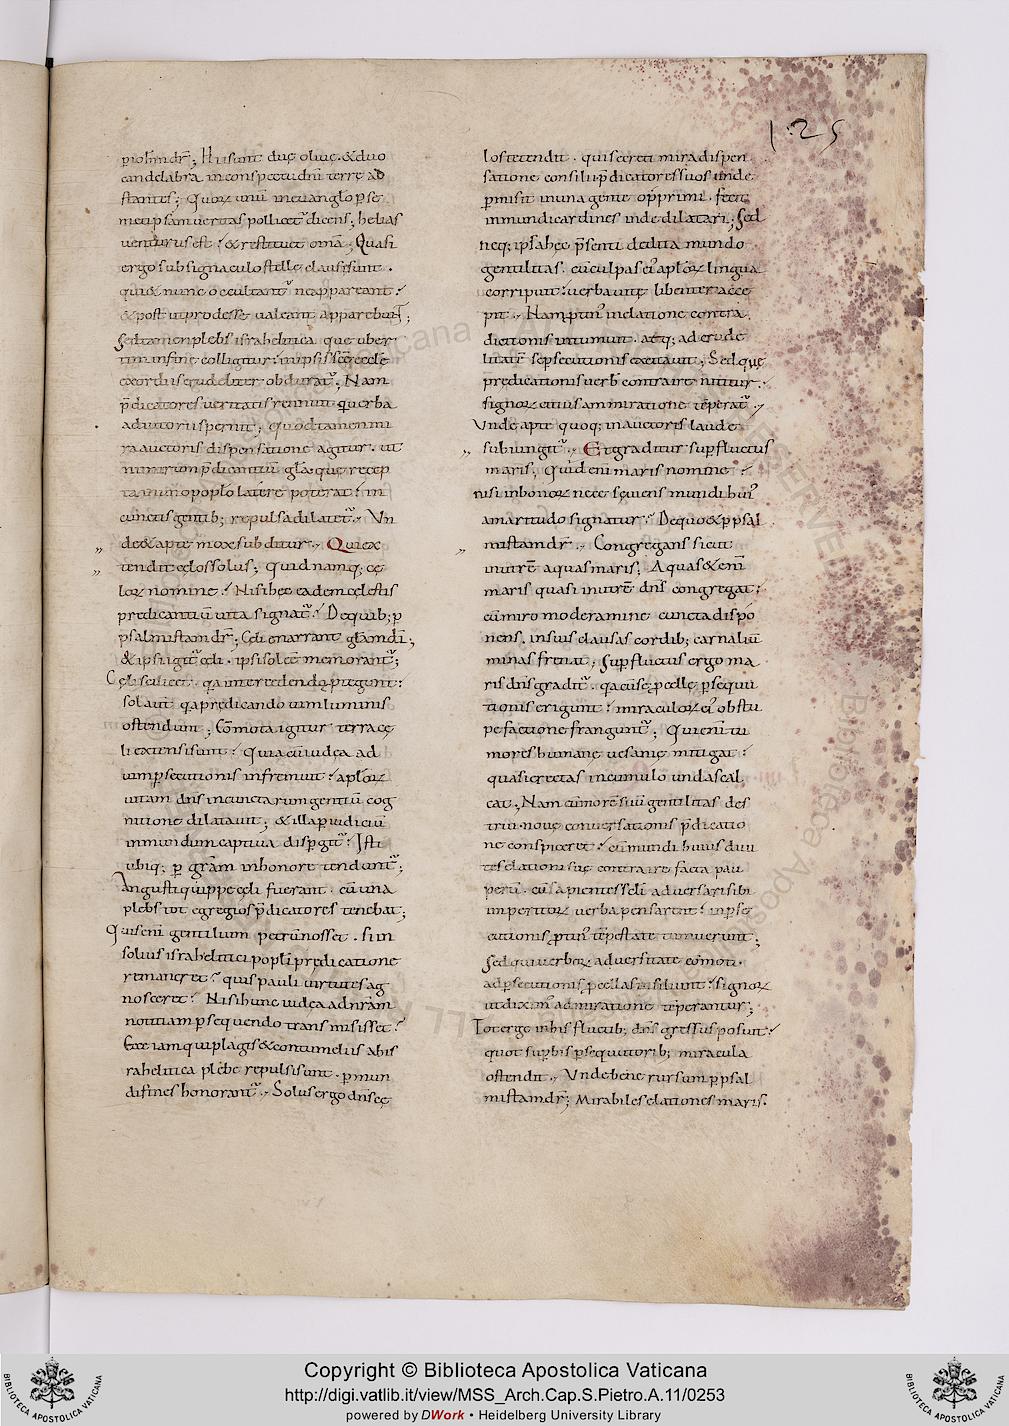 1:25
p ioh̄em dr̄; Hi sunt duę oliuę. & duo
candelabra in conspectu dn̄i terrę ad
stantes; Quorꝝ unū in euanglo p se
metipsam ueritas pollicet᷑ dicens; helias
uenturus est ⸵ & restituet om̄a; Quasi
ergo sub signaculo stellę clausi sunt.
qui & nunc occultant᷑ ne appareant ⸵
& post ut prodesse ualeant apparebunt;
Sed tamen plebs israhelitica quę uber
tim in fine colligitur ⸵ in ipsis scę ecclę
exordiis crudeliter obdurat᷑; Nam
p̄dicatores ueritatis rennuit ⸵ uerba
adiutorii spernit; Quod tamen mi
ra auctoris dispensatione agitur. ut
nimirum p̄dicantiū gła. quę recep
ta in uno poplo latere poterat ⸵ in
cunctis gentib; repulsa dilatet᷑. Un
de & apte mox subditur. Qui ex
tendit cęlos solus; Quid namq; cę
lorꝝ nomine ⸵ Nisi hęc eadem cęlestis
predicantiū uita signat᷑ ⸵ De quib; p
psalmistam dr̄; Cęli enarrant głam dī;
& ipsi igit᷑ cęli. ipsi sol cē memorant᷑;
Cęli scilicet. qa intercedendo p̄tegunt ⸵
sol aut̄. qa predicando uim luminis
ostendunt; Com̄ota igitur terra cę
li extensi sunt ⸵ Quia cū iudea ad
uim p̄secutionis infremuit ⸵ aplorꝝ
uitam dn̄s in cunctarum gentiū cog
nitione dilatauit; & illa p iudiciū
in mundum captiua dispgit᷑ ⸵ Isti
ubiq; p gr̄am in honore tendunt᷑;
Angusti quippe cęli fuerant. cū una
plebs tot egregios p̄dicatores tenebat;
Quis enī gentilium petrū nosset. si in
solius israhelitici popli prędicatione
remaneret ⸵ quis pauli uirtutes ag
nosceret ⸵ Nisi hunc iudea ad nr̄am
notitiam p̄sequendo transmisisset ⸵
Ecce iam qui plagis & contumeliis ab is
rahelitica plebe repulsi sunt. p mun
di fines honorant᷑. Solus ergo dn̄s cę
los tetendit. qui secreti mira dispen
satione consilii p̄dicatores suos unde
p̄misit in una gente opprimi. fecit
in mundi cardines inde dilatari; Sed
neq; ipsa hęc p̄senti dedita mundo
gentilitas. cū culpas ei᷑ aplorꝝ lingua
corripuit ⸵ uerba uitę libenter acce
pit. Nam ptin᷑ in elatione contra
dictionis intumuit. atq; ad crude
litatē se p̄secutionis excitauit; Sed quę
predicationis uerb̄ contraire nititur.
signorꝝ citius ammiratione tēperat᷑.
Unde apte quoq; in auctoris laude
subiungit᷑. Et graditur sup fluctus
maris; Quid enī maris nomine ⸵
nisi in bonorꝝ nece sęuiens mundi hui᷑
amaritudo signatur ⸵ De quo & p psal
mistam dr̄. Congregans sicut
in utrē aquas maris; Aquas & enī
maris quasi in utrē dn̄s congregat ⸵
cū miro moderamine cuncta dispo
nens. in suis clausas cordib; carnaliū
minas frenat; Sup fluctus ergo ma
ris dn̄s gradit᷑. qa cū se pcellę p̄secu
tionis erigunt ⸵ miraculorꝝ ei᷑ obstu
pefactione frangunt᷑; Qui enī tu
mores humanę uesanię mitigat ⸵
quasi erectas in cumulo undas cal
cat; Nam cū mores suū gentilitas des
trui. nouę conuersationis p̄dicatio
ne conspiceret ⸵ cū mundi huius diui
tes elationi suę contraire facta pau
perū. cū sapientes sęli aduersari sibi
imperitorꝝ uerba pensarent ⸵ in p̄se
cutionis ptin᷑ tēpestate tumuerunt;
Sed qui uerborꝝ aduersitate com̄oti.
ad p̄secutionis pcellas insiliunt ⸵ signorꝝ
ut dixim᷑ admiratione tēperantur;
Tot ergo in his fluctib; dn̄s gressus posuit ⸵
quot supbis p̄sequutorib; miracula
ostendit. Unde bene rursum p psal
mistam dr̄; Mirabiles elationes maris.
Copyright © Biblioteca Apostolica Vaticana
http://digi.vatlib.it/view/MSS_Arch.Cap.S.Pietro.A.11/0253
powered by DWork • Heidelberg University Library
BIBLIOTECA APOSTOLICA VATICANA
BIBLIOTECA APOSTOLICA VATICANA